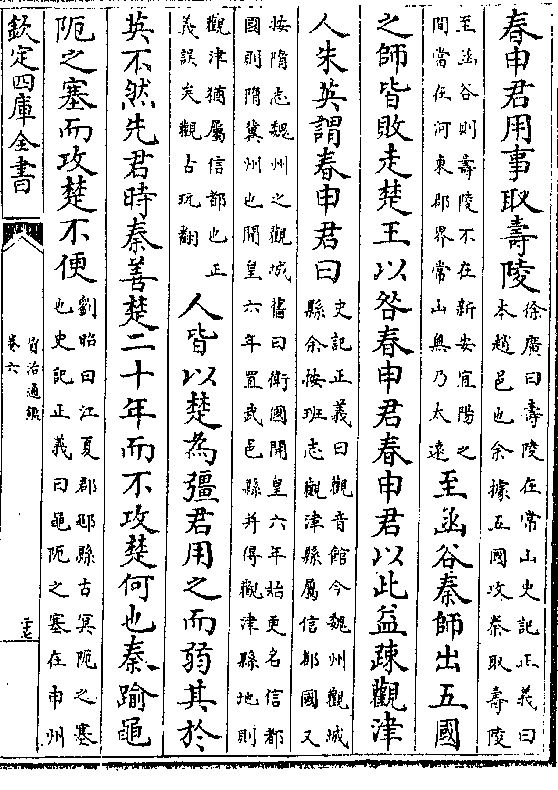 春申君用事取壽陵徐廣曰壽陵在常山史記正義曰
本趙邑也余據五國攻秦取壽陵
至函谷則壽陵不在新安宜陽之
間當在河東郡界常山無乃太遠至函谷秦師出五國
之師皆敗走楚王以咎春申君春申君以此益疎觀津
人朱英謂春申君曰史記正義曰觀音館今魏州觀城
縣余按班志觀津縣屬信都國又
按隋志魏州之觀城舊曰衛國開皇六年始更名信都
國則隋冀州也開皇六年置武邑縣并得觀津縣地則
觀津猶屬信都也正
義誤矣觀古玩翻人皆以楚為彊君用之而弱其於
英不然先君時秦善楚二十年而不攻楚何也秦踰黽
阨之塞而攻楚不便劉昭曰江夏郡鄳縣古冥阨之塞
也史記正義曰黽阨之塞在申州
欽定四庫全書
資治通鑑
卷六